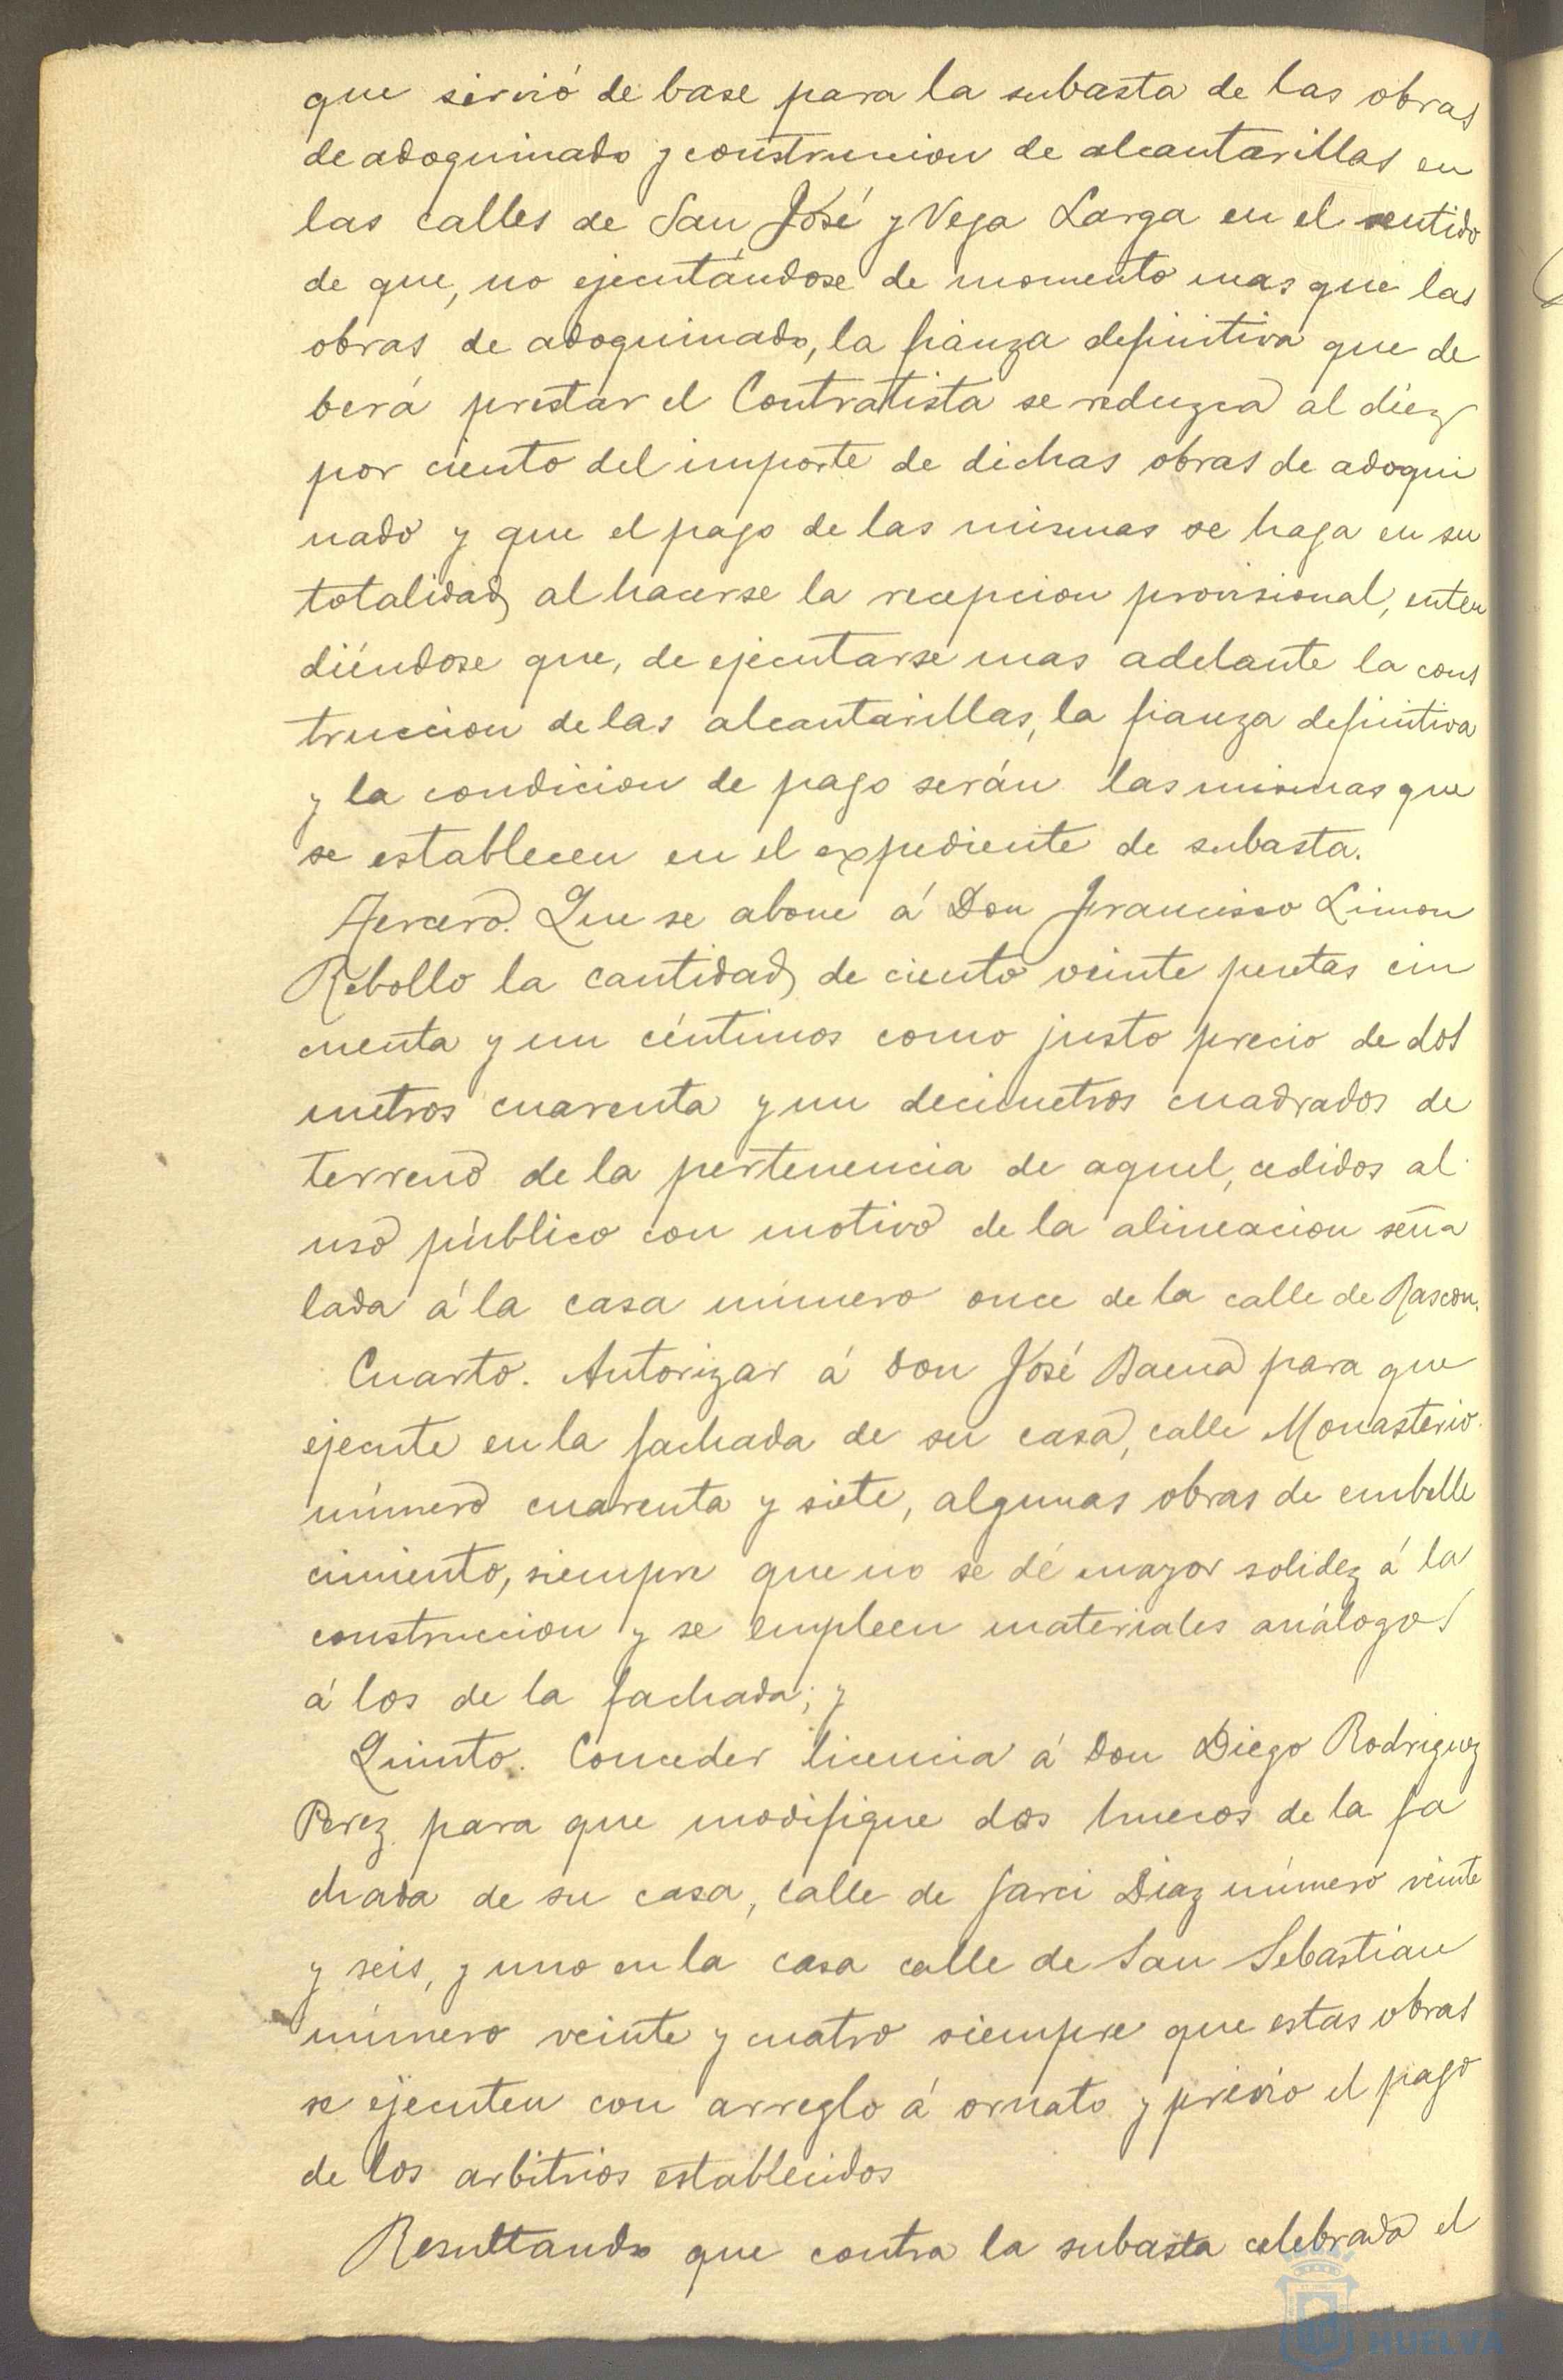 que sirvió de base para la subasta de las obras
de adoquinado y construccion de alcantarillas en
las calles de San José y Vega Larga en el sentido
de que, no ejecutándose de momento mas que las
obras de adoquinado, la fianza definitiva que de
berá prestar el Contratista se reduzca al diez
por ciento del importe de dichas obras de adoqui
nado y que el pago de las mismas se haga en su
totalidad al hacerse la recepcion provisional, enten
diéndose que, de ejecutarse mas adelante la cons
truccion de las alcantarillas, la fianza definitiva
y la condicion de pago serán las mismas que
se establecen en el expediente de subasta.
Tercero. Que se abone á Don Francisco Limon
Rebollo la cantidad de ciento veinte pesetas cin
cuenta y un céntimos como justo precio de dos
metros cuarenta y un decimetros cuadrados de
terreno de la pertenencia de aquel, cedidos al
uso público con motivo de la alineacion seña
lada á la casa número once de la calle de Rascon.
Cuarto. Autorizar á Don José Baena para que
ejecute en la fachada de su casa, calle Monasterio
número cuarenta y siete, algunas obras de embelle
cimiento, siempre que no se dé mayor solidez á la
construccion y se empleen materiales análogos
á los de la fachada; y
Quinto. Conceder licencia á Don Diego Rodriguez
Perez para que modifique dos huecos de la fa
chada de su casa, calle de Garci Diaz número veinte
y seis, y uno en la casa calle de San Sebastián
número veinte y cuatro siempre que estas obras
se ejecuten con arreglo á ornato y previo el pago
de los arbitrios establecidos
Resultando que contra la subasta celebrada el
HUELVA